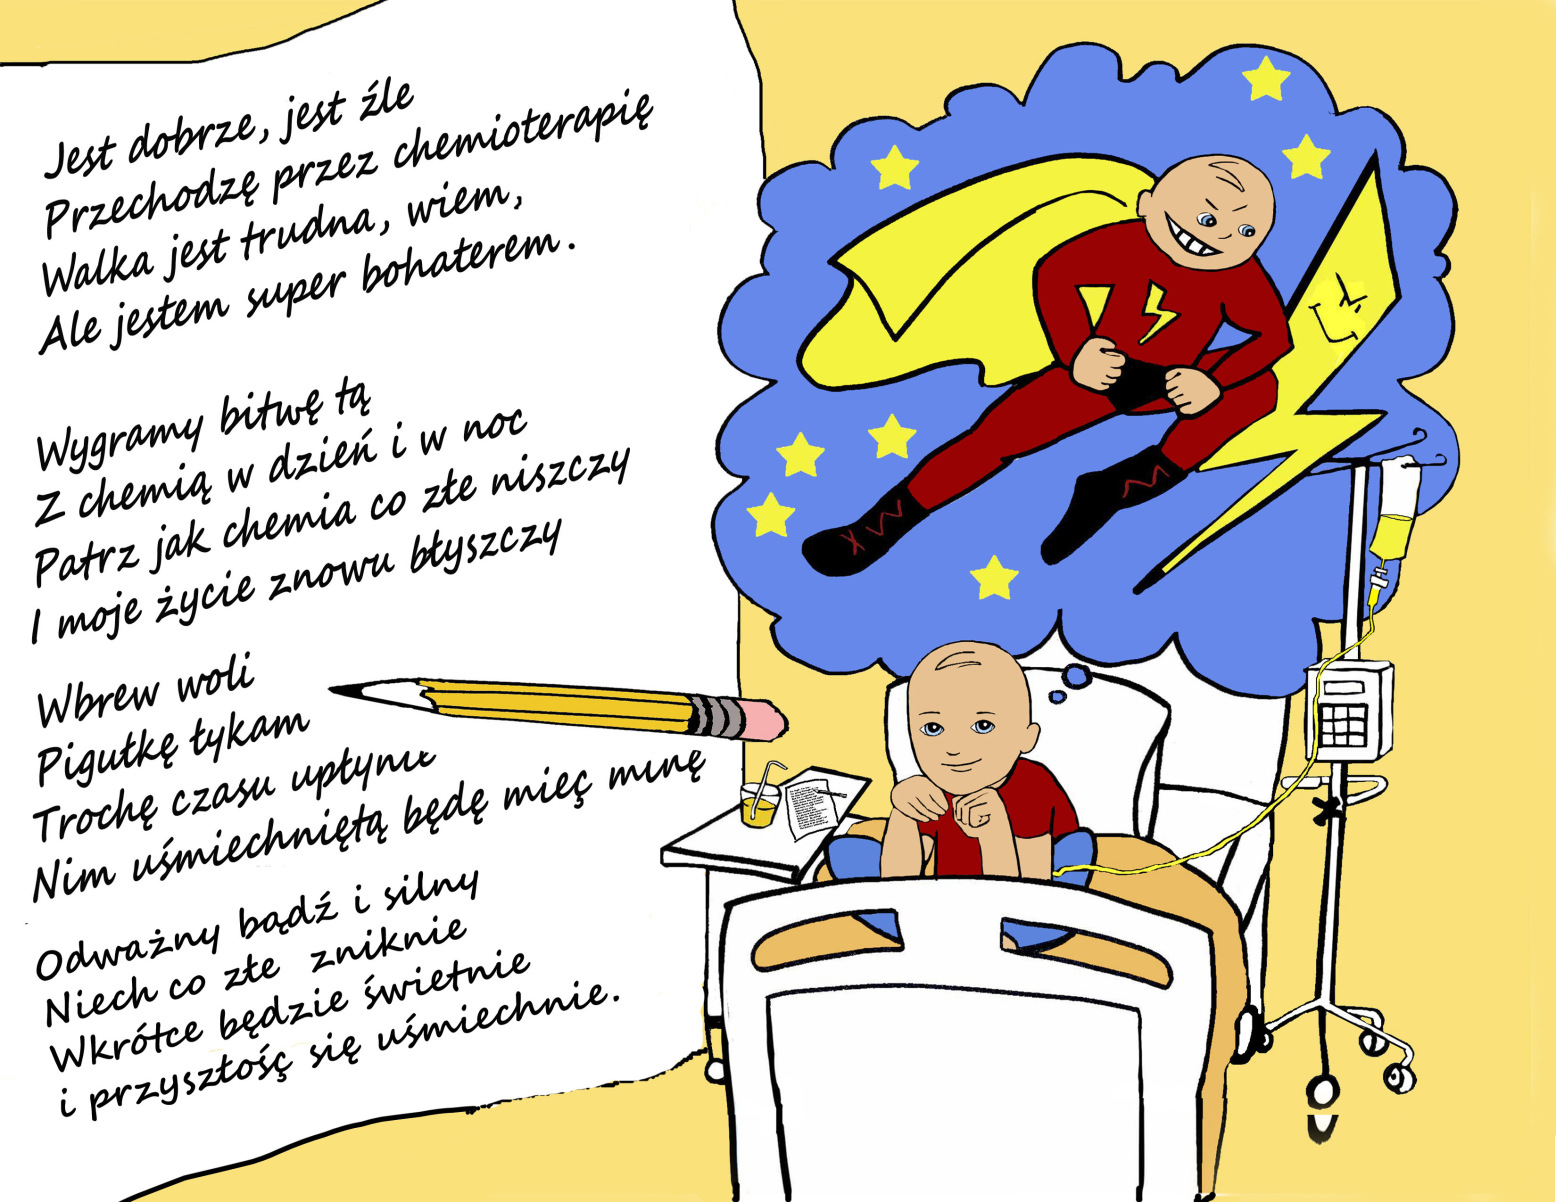 Jest dobrze, jest źle
Przechodzę przez chemioterapię
Walka jest trudna, wiem,
Ale jestem super bohaterem.
Wygramy bitwę tą
Z chemią w dzień i w noc
Patrz jak chemia co złe niszczy
I moje życie znowu błyszczy
Wbrew woli
Pigułkę łykam
Trochę czasu upłynie
Nim uśmiechniętą będę mieç minę
Odważny bądź i silny
Niech co złe zniknie
Wkrótce będzie świetnie
i przyszłośç się uśmiechnie.